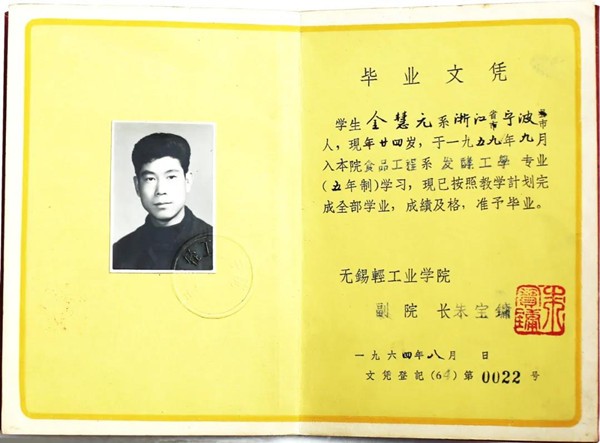 毕业文凭
学生 金慧元 系 浙江 省市 宁波 县市
人，现年廿四岁，于一九五九年九月
入本院食品工程系 发酵工學 专业
(五年制)学习，现已按照教学计划完
成全部学业，成绩及格，准予毕业。
无錫輕工业学院
副院长 朱宝鏞
一九六四年八月 日
文凭登記(64)第 0022 号